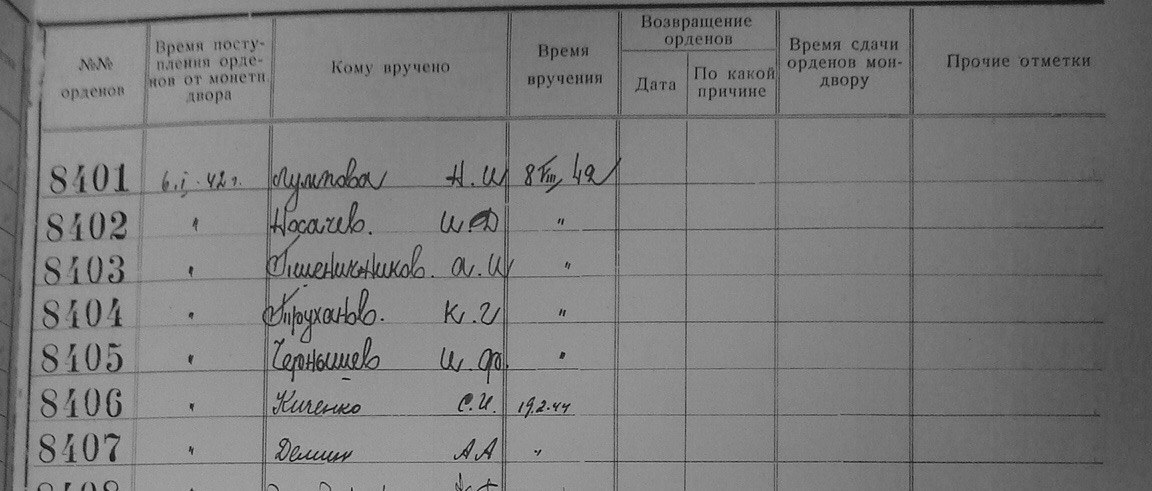 №№ орденов
Время посту-пления орде-нов от монетн. двора
Кому вручено
Время вручения
Возвращение орденов
Дата
По какой причине
Время сдачи орденов мон-двору
Прочие отметки
8401 6.I.42г. Н.И 8 VIII 42
8402 " Носачев. И.Д "
8403 " Пшеничников. А.И "
8404 " Труханов. К.Г "
8405 " Чернышев И.Ф. "
8406 " Киченко С.И. 19.2.44
8407 " Демин АА "
8408